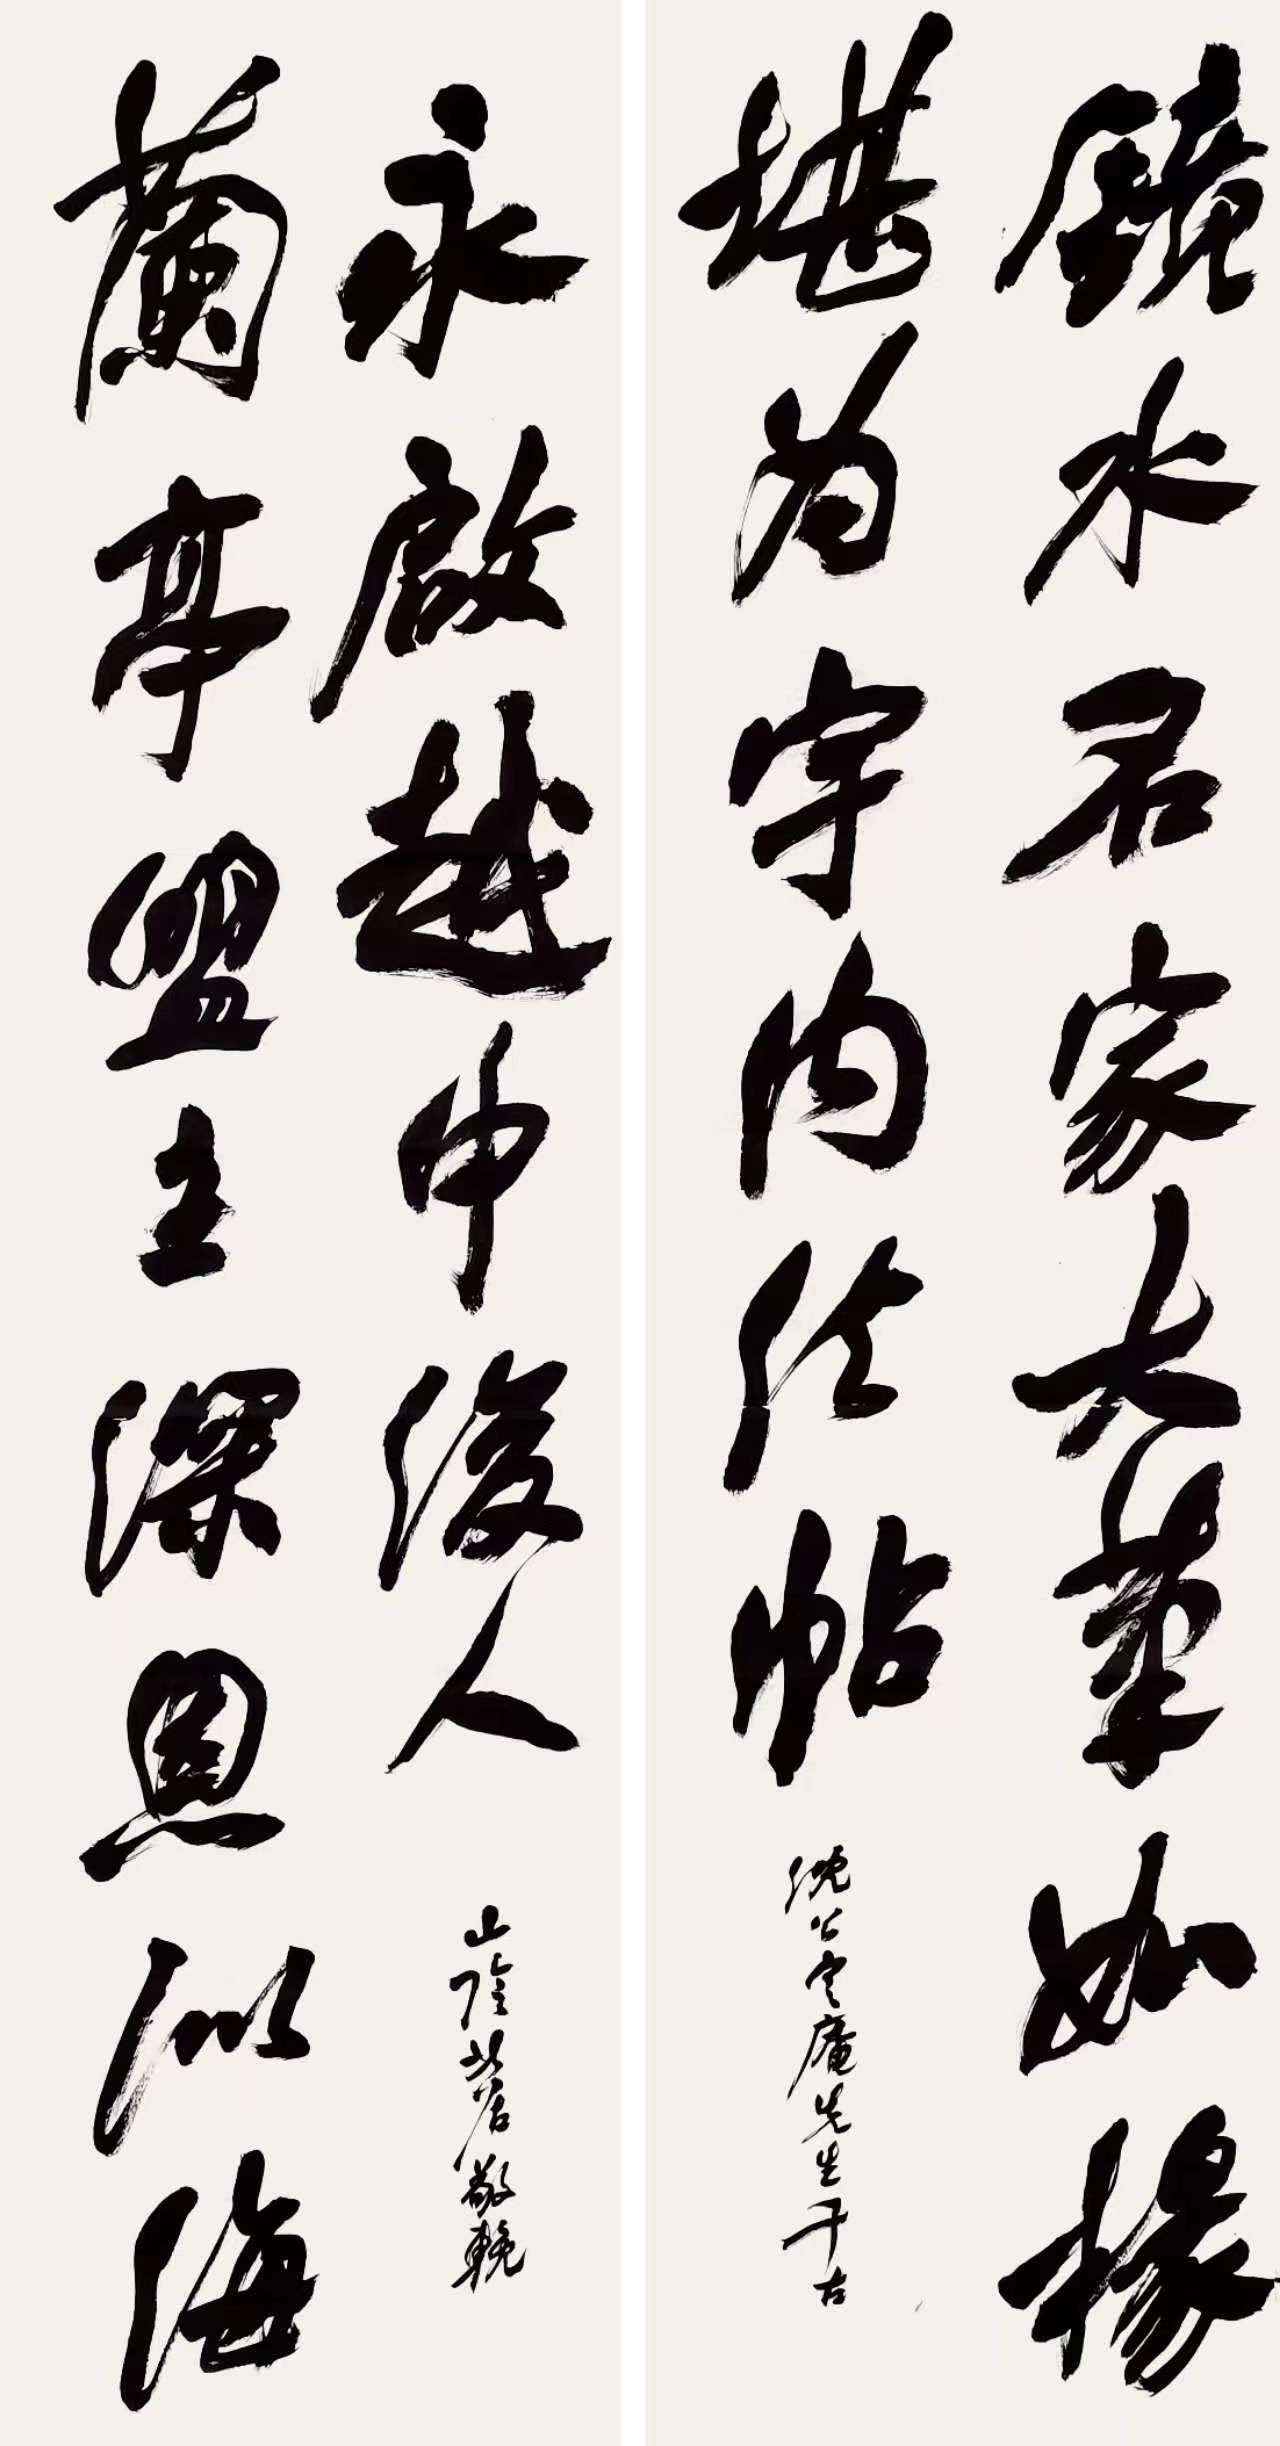 鏡水名家大筆如椽
堪為宇內法帖
沈公定庵先生千古
蘭亭盟主深恩似海
永啟越中後人
山陰敬輓